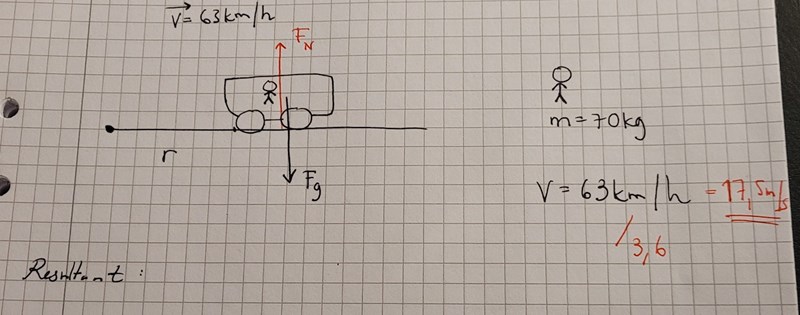 V = 63 km/h
F_N
m = 70kg
r
F_g
V = 63 km/h = 17,5m/s
/3,6
Resultant :